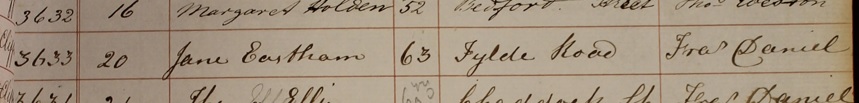 3632 16 Margaret Holden 52 Bedford Street Thos Weston
3633 20 Jane Eastham 63 Fylde Road Fras Daniel
Ellis Daniel